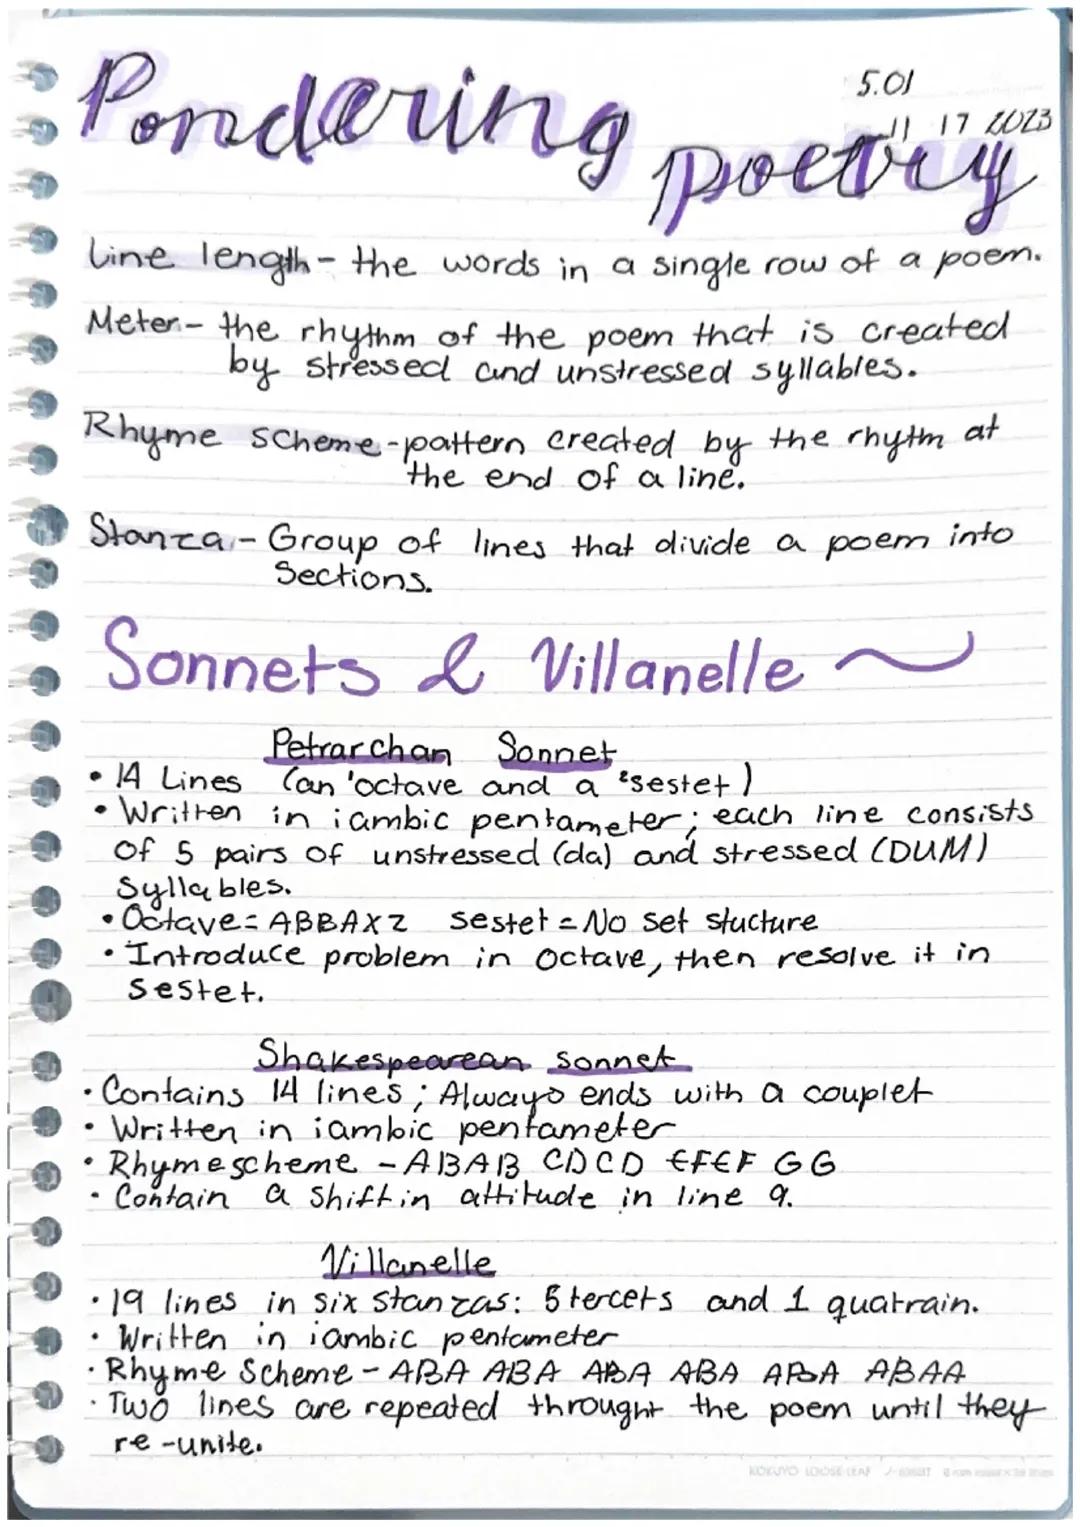 5.01
11 17 2023
Pondering poetry
Line length - the words in a single row of a poem.
Meter - the rhythm of the poem that is created
by stressed and unstressed syllables.
Rhyme scheme - pattern created by the rhythm at
the end of a line.
Stanza - Group of lines that divide a poem into
Sections.
Sonnets & Villanelle
Petrarchan Sonnet
• 14 Lines (an 'octave and a ²sestet)
• Written in iambic pentameter; each line consists
of 5 pairs of unstressed (da) and stressed (DUM)
Syllables.
• Octave = ABBAX2 sestet = No set stucture
• Introduce problem in Octave, then resolve it in
Sestet.
Shakespearean sonnet
• Contains 14 lines; Always ends with a couplet
• Written in iambic pentameter
• Rhyme scheme - ABAB CDCD EFEF GG
• Contain a shift in attitude in line 9.
Villanelle
• 19 lines in six stanzas: 5 tercets and 1 quatrain.
• Written in iambic pentameter
• Rhyme Scheme - ABA ABA ABA ABA ABA ABAA
• Two lines are repeated throught the poem until they
re-unite.
KOKUYO LOOSE-LEAF